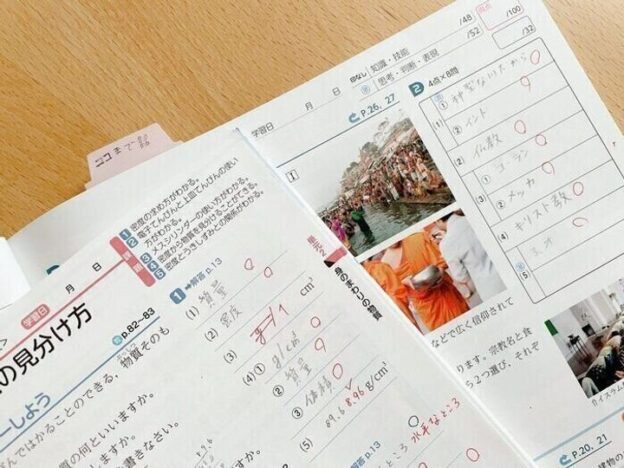 /48
得点
/100
印なし 知識・技能
/52
思考・判断・表現
/32
月 日
学習日
P.26, 27
2 4点×8問
①
神聖な川だから
② インド
(2) 仏教
(3) ① コーラン
② メッカ
(4) キリスト教
(5)
などで広く信仰されて
ります。宗教名と食
ち2つ選び、それぞ
P.20, 21
ココまで
1 密度の求め方がわかる。
2 電子てんびんと上皿てんびんの使い
方がわかる。
3 メスシリンダーの使い方がわかる。
4 密度から物質を見分けることができる。
5 密度とうきしずみとの関係がわかる。
課題
月 日
学習日
の見分け方
P.82~83
ーしよう
んではかることのできる、物質そのも
質の何といいますか。
すか。
書きなさい。
身のまわりの物質
1 解答 p.13
(1) 質量
(2) 密度
(3) g 1 cm³
(4) ① g/cm³
② 質量
③ 体積
(5) 8.96 g/cm³
解答 p.13
水平なところ